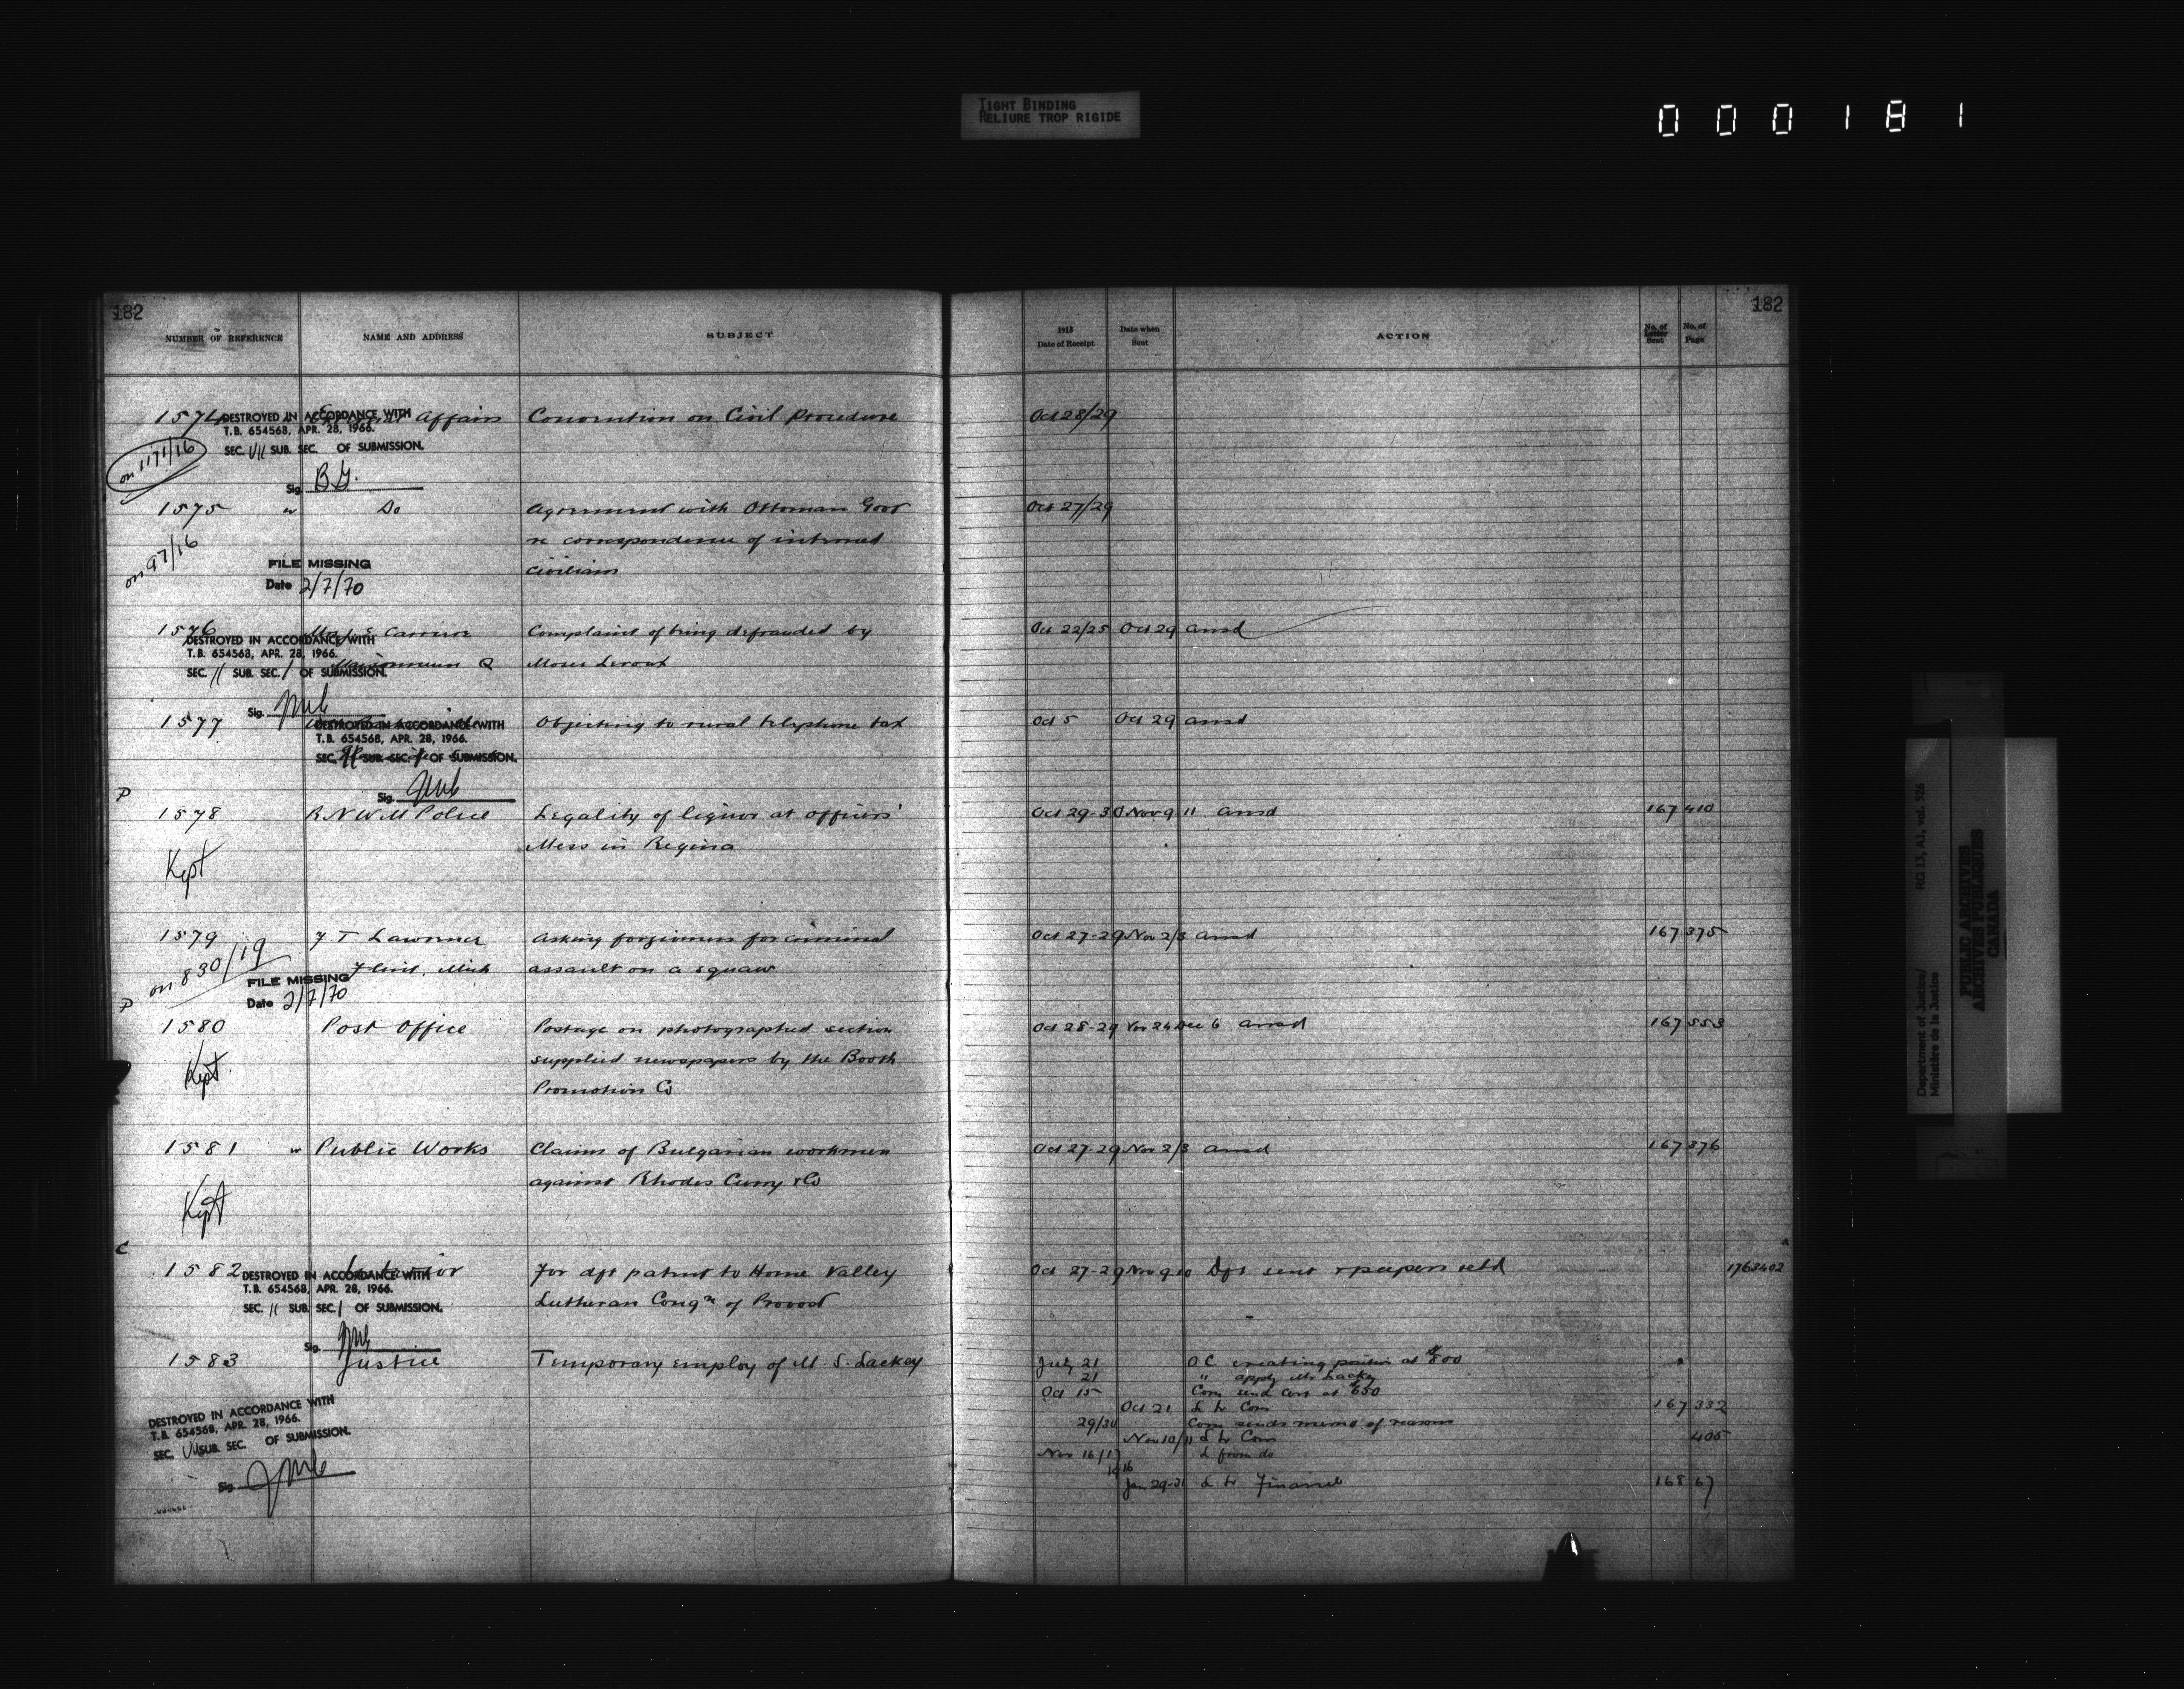 TIGHT BINDING
RELIURE TROP RIGIDE
000181
182
NUMBER OF REFERENCE
NAME AND ADDRESS
SUBJECT
1915
Date of Receipt
Date when
Sent
ACTION
No. of
Letter
Sent
No. of
Page
182
1574 External Affairs Convention on Civil Procedure Oct 28/29
DESTROYED IN ACCORDANCE WITH
T.B. 654568, APR. 28, 1966.
SEC. VII SUB. SEC. OF SUBMISSION.
on 1171/16
Sig. B.G.
1575 " Do Agreement with Ottoman Govt Oct 27/29
re correspondence of interned
civilians
on 97/16
FILE MISSING
Date 2/7/70
1576 Carriere Complaint of being defrauded by Oct 22/25 Oct 29 ansd
DESTROYED IN ACCORDANCE WITH
T.B. 654568, APR. 28, 1966.
Q Moses Leroux
SEC. 11 SUB. SEC. 1 OF SUBMISSION.
Sig.
1577 Objecting to rural telephone tax Oct 5 Oct 29 ansd
DESTROYED IN ACCORDANCE WITH
T.B. 654568, APR. 28, 1966.
SEC. SUB. SEC. OF SUBMISSION.
Sig.
P
1578 R N W M Police Legality of liquor at officers' Oct 29-30 Nov 9 11 ansd 167 410
Mess in Regina
Kept
1579 F T Lawrence Asking forgiveness for criminal Oct 27-29 Nov 2/3 ansd 167 375
Flint, Mich assault on a squaw
on 830/19
FILE MISSING
Date 2/7/70
P
1580 Post Office Postage on photographed section Oct 28-29 Nov 24 Dec 6 ansd 167 553
supplied newspapers by the Booth
Promotion Co
Kept.
1581 " Public Works Claims of Bulgarian workmen Oct 27-29 Nov 2/3 ansd 167 376
against Rhodes Curry & Co
Kept
C
1582 Interior For dft patent to Home Valley Oct 27-29 Nov 9 10 Dft sent & papers retd 1763402
DESTROYED IN ACCORDANCE WITH
T.B. 654568, APR. 28, 1966.
Lutheran Congn of Provost
SEC. 11 SUB. SEC. 1 OF SUBMISSION.
Sig.
1583 Justice Temporary employ of M. S. Lackey July 21 OC creating position at $800
21 " apply Mr Lackey
Oct 15 Com send cert at $650
Oct 21 L to Com 167 332
29/30 Com sends memo of reasons
Nov 10/11 L to Com 405
Nov 16/17 L from do
1916
Jan 29-31 L to Finance 168 67
DESTROYED IN ACCORDANCE WITH
T.B. 654568, APR. 28, 1966.
SEC. VII SUB. SEC. OF SUBMISSION.
Sig.
Department of Justice/
Ministère de la Justice
RG 13, A1, vol. 526
PUBLIC ARCHIVES
ARCHIVES PUBLIQUES
CANADA